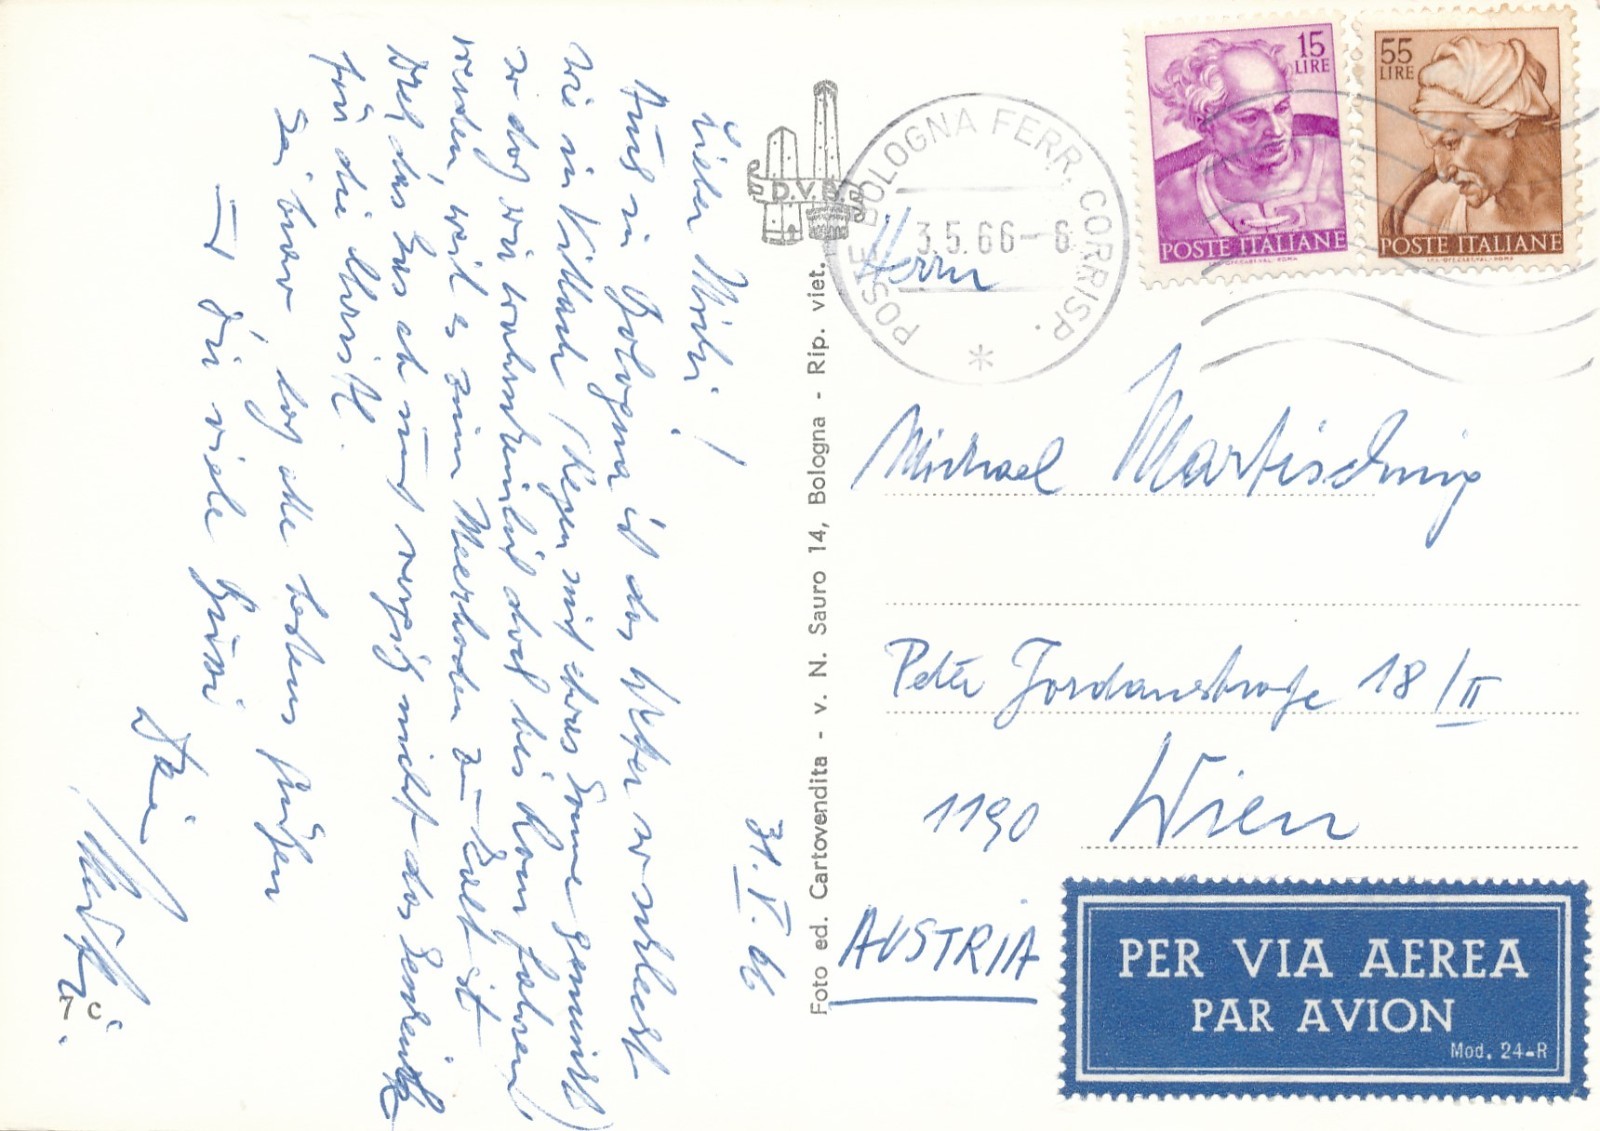 Lieber Michi!
Auch in Bologna ist das Wetter so schlecht
wie in Villach (Regen mit etwas Sonne gemischt)
so daß wir wahrscheinlich doch bis Rom fahren
werden, weil es zum Meerbaden zu kalt ist.
das und vergiß nicht das
für die
Sei brav, laß alle bestens grüßen
und Dir viele Bussi
Dein
31.V.66
Herrn
Michael Martischnig
Peter Jordanstraße 18/II
1190 Wien
AUSTRIA
D.V.B.
Foto ed. Cartovendita - v. N. Sauro 14, Bologna - Rip. viet.
7 c
POSTE BOLOGNA FERR. CORRISP.
3.5.66-6
*
15 LIRE
POSTE ITALIANE
55 LIRE
POSTE ITALIANE
PER VIA AEREA
PAR AVION
Mod. 24-R